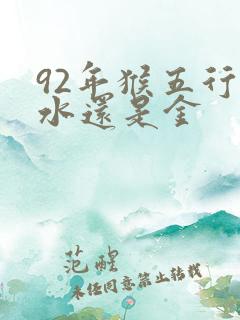 92年猴五行
水還是金
范醒
未经同意禁止转载